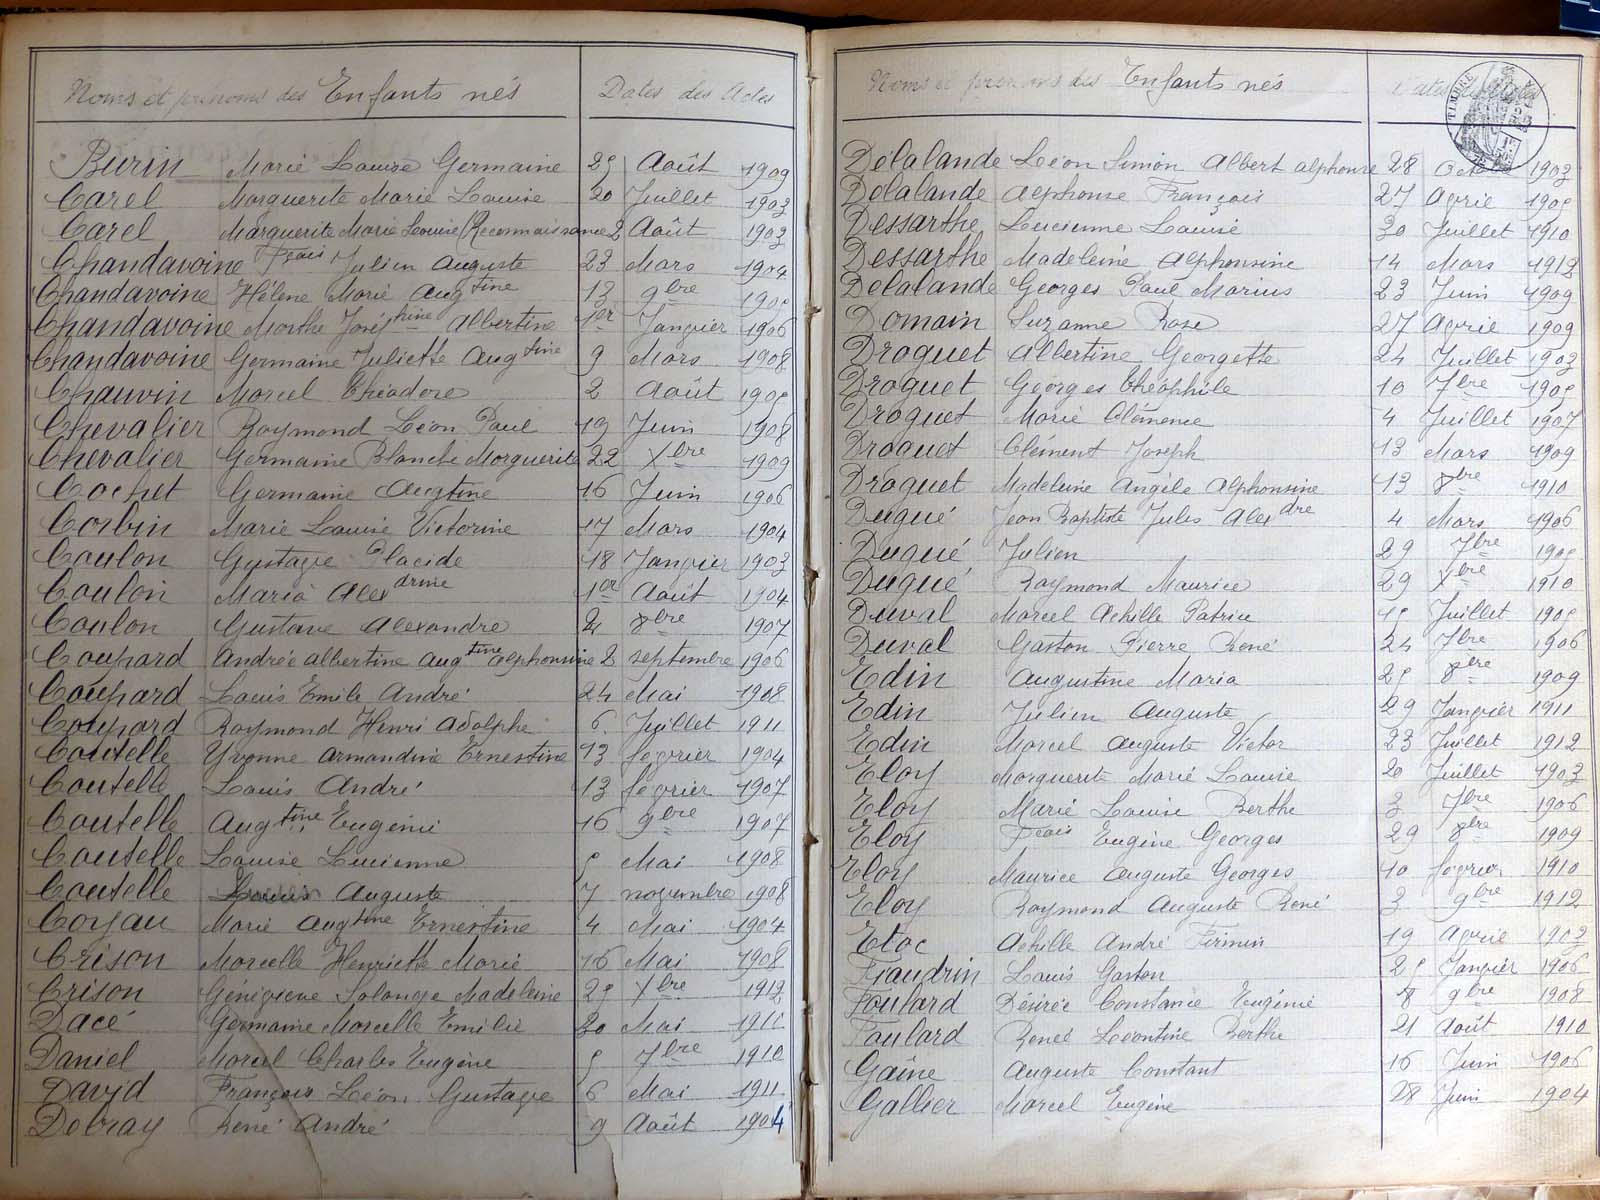 Noms et prénoms des Enfants nés Dates des Actes
Burin Marie Louise Germaine 25 Août 1909
Carel Marguerite Marie Louise 20 Juillet 1903
Carel Marguerite Marie Louise (Reconnaissance 2 Août 1903
Chandavoine Fçais Julien Auguste 23 Mars 1904
Chandavoine Hélène Marie Augtine 13 9bre 1905
Chandavoine Marthe Joséphine Albertine 1er Janvier 1906
Chandavoine Germaine Juliette Augtine 9 Mars 1908
Chauvin Marcel Théodore 2 Août 1905
Chevalier Raymond Léon Paul 19 Juin 1908
Chevalier Germaine Blanche Marguerite 22 Xbre 1909
Cochet Germaine Augtine 16 Juin 1906
Corbin Marie Louise Victorine 17 Mars 1904
Coulon Gustave Placide 18 Janvier 1903
Coulon Maria Alexdrine 1er Août 1904
Coulon Gustave Alexandre 8bre 1907
Coupard Andrée Albertine Augtine Alphonsine 2 septembre 1906
Coupard Louis Emile André 24 Mai 1908
Coupard Raymond Henri Adolphe 6 Juillet 1911
Coutelle Yvonne Armandine Ernestine 13 février 1904
Coutelle Louis André 13 février 1907
Coutelle Augtine Eugénie 16 9bre 1907
Coutelle Louise Lucienne 5 Mai 1908
Coutelle Auguste 7 novembre 1908
Coyau Marie Augtine Ernestine 4 Mai 1904
Crison Marcelle Henriette Marie 16 Mai 1908
Crison Géneviève Solange Madeleine 25 Xbre 1912
Dacé Germaine Marcelle Emilie 20 Mai 1911
Daniel Marcel Charles Eugène 5 7bre 1910
David François Léon Gustave 6 Mai 1911
Debray René André 9 Août 1904
Noms et prénoms des Enfants nés
TIMBRE
Délalande Léon Simon Albert Alphonse 28 1903
Delalande Alphonse François 27 Avril 1905
Dessarthe Lucienne Louise 30 Juillet 1910
Dessarthe Madeleine Alphonsine 14 Mars 1912
Delalande Georges Paul Marius 23 Juin 1909
Domain Suzanne Rose 27 Avril 1909
Droguet Albertine Georgette 24 Juillet 1903
Droguet Georges Théophile 10 7bre 1905
Droguet Marie Clémence 4 Juillet 1907
Droguet Clément Joseph 13 Mars 1909
Droguet Madeleine Angèle Alphonsine 13 8bre 1910
Dugué Jean Baptiste Jules Alexdre 4 Mars 1906
Dugué Julien 29 7bre 1905
Dugué Raymond Maurice 29 Xbre 1910
Duval Marcel Achille Patrice 15 Juillet 1905
Duval Gaston Pierre René 24 7bre 1906
Edin Augustine Maria 25 8bre 1909
Edin Julien Auguste 29 Janvier 1911
Edin Marcel Auguste Victor 23 Juillet 1912
Eloy Marguerite Marie Louise 20 Juillet 1903
Eloy Marie Louise Berthe 3 7bre 1906
Eloy Fçais Eugène Georges 29 8bre 1909
Eloy Maurice Auguste Georges 10 février 1910
Eloy Raymond Auguste René 3 9bre 1912
Etoc Achille André Firmin 19 Avril 1902
Flaudrin Louis Gaston 25 Janvier 1906
Foulard Désirée Constance Eugénie 8 9bre 1908
Foulard Renée Léontine Berthe 21 Août 1910
Gaîne Auguste Constant 16 Juin 1906
Gallier Marcel Eugène 28 Juin 1904